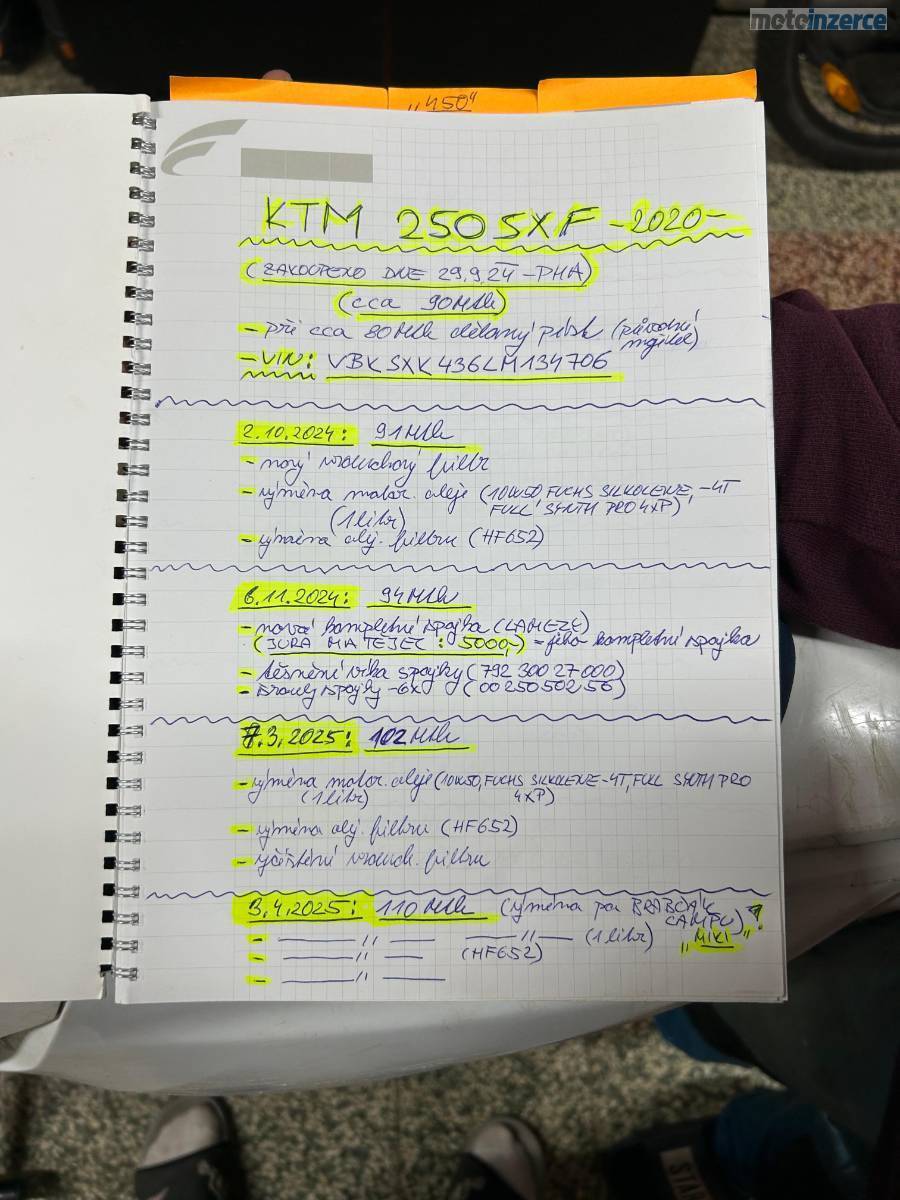 motoinzerce
"450"
KTM 250 SXF -2020-
(ZAKOUPENO DNE 29.9.24 -PHA)
(cca 90Mth)
- při cca 80Mth dělaný píst (původní
majitel)
- VIN: VBKSXK436LM134706
2.10.2024: 91Mth
- nový vzduchový filtr
- výměna motor. oleje (10W50, FUCHS SILKOLENE, -4T
FULL SYNTH PRO 4XP)
(1litr)
- výměna olej. filtru (HF652)
6.11.2024: 94Mth
- nová kompletní spojka (LAMELY)
(JURA MATEJEC: 5000,-) = jeho kompletní spojka
- těsnění víka spojky (792 300 27 000)
- šrouby spojky -6x (00 250 502 56)
7.3.2025: 102Mth
- výměna motor. oleje (10W50, FUCHS SILKOLENE -4T, FULL SYNTH PRO
(1litr) 4XP)
- výměna olej. filtru (HF652)
- vyčištění vzduch. filtru
3.4.2025: 110Mth (výměna po BRABČÁK
CAMPU)?
- —— ,, —— ——,,—— (1litr) "MIKI"
- —— ,, —— (HF652)
- —— ,, ——
STA